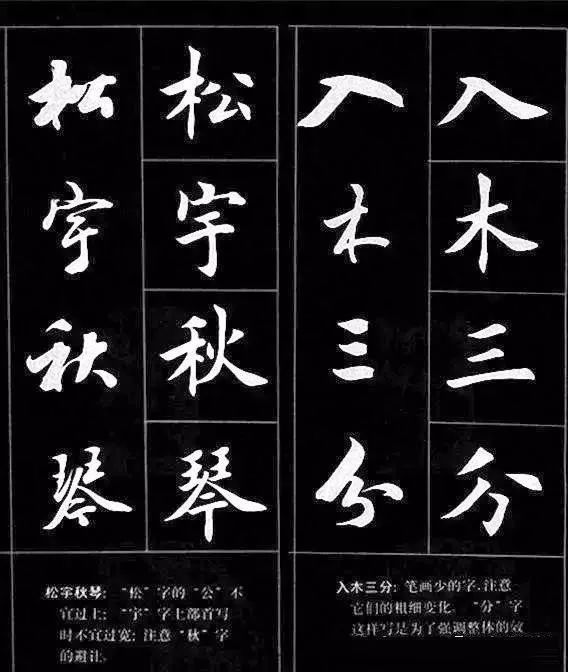 入木三分
入木三分
松宇秋琴
松宇秋琴
入木三分：笔画少的字，注意
它们的粗细变化。“分”字
这样写是为了强调整体的效
松宇秋琴：“松”字的“公”不
宜过上；“宇”字上部首写
时不宜过宽；注意“秋”字
的避让。